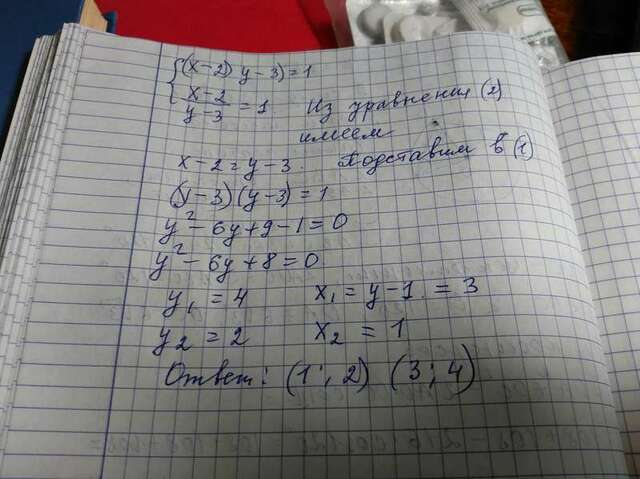 (x-2) y-3)=1
x-2
y-3 = 1 Из уравнения (2)
имеем
x-2=y-3. Подставим в (1)
(y-3)(y-3)=1
y²-6y+9-1=0
y²-6y+8=0
y₁=4 x₁=y-1.=3
y₂=2 x₂=1
Ответ: (1; 2) (3; 4)